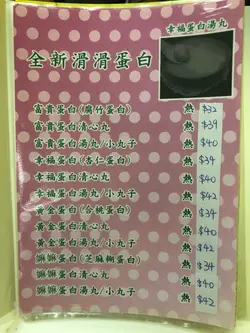 幸福蛋白湯丸
全新滑滑蛋白
富貴蛋白(腐竹蛋白) 熱 $32
富貴蛋白清心丸 熱 $39
富貴蛋白湯丸/小丸子 熱 $40
幸福蛋白(杏仁蛋白) 熱 $34
幸福蛋白清心丸 熱 $40
幸福蛋白湯丸/小丸子 熱 $42
黃金蛋白(合桃蛋白) 熱 $34
黃金蛋白清心丸 熱 $40
黃金蛋白湯丸/小丸子 熱 $42
嫲嫲蛋白(芝麻糊蛋白) 熱 $34
嫲嫲蛋白清心丸 熱 $40
嫲嫲蛋白湯丸/小丸子 熱 $42